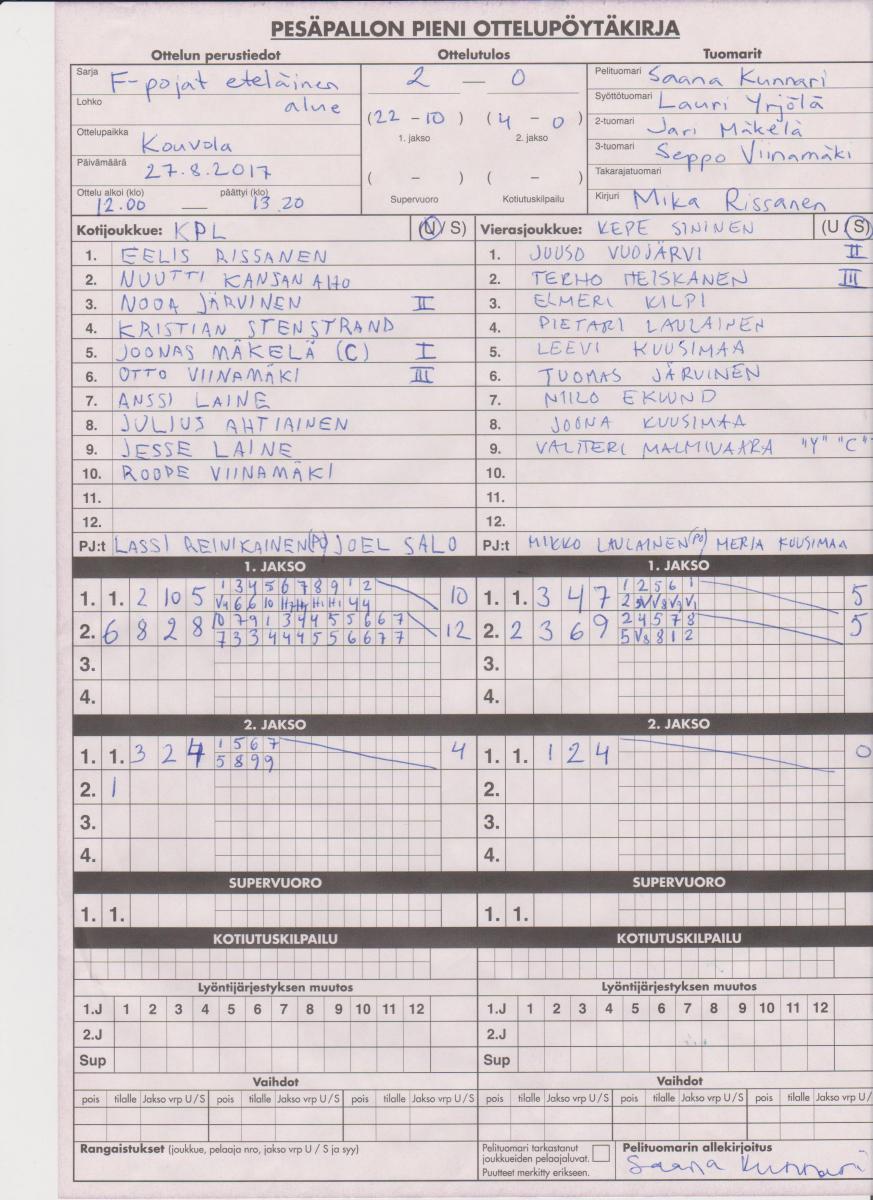 PESÄPALLON PIENI OTTELUPÖYTÄKIRJA
Ottelun perustiedot Ottelutulos Tuomarit
Sarja F-pojat eteläinen alue
Lohko
Ottelupaikka Kouvola
Päivämäärä 27.8.2017
Ottelu alkoi (klo) päättyi (klo)
12.00 — 13.20
2 — 0
(22 - 10) (4 - 0)
1. jakso 2. jakso
( - ) ( - )
Supervuoro Kotiutuskilpailu
Pelituomari Saana Kunnari
Syöttötuomari Lauri Yrjölä
2-tuomari Jari Mäkelä
3-tuomari Seppo Viinamäki
Takarajatuomari
Kirjuri Mika Rissanen
Kotijoukkue: KPL (U/S)
1. EELIS RISSANEN
2. NUUTTI KANSANAHO
3. NOOA JÄRVINEN II
4. KRISTIAN STENSTRAND
5. JOONAS MÄKELÄ (C) I
6. OTTO VIINAMÄKI III
7. ANSSI LAINE
8. JULIUS AHTIAINEN
9. JESSE LAINE
10. ROOPE VIINAMÄKI
11.
12.
PJ:t LASSI REINIKAINEN (PJ) JOEL SALO
Vierasjoukkue: KEPE SININEN (U/S)
1. JUUSO VUOJÄRVI II
2. TERHO HEISKANEN III
3. ELMERI KILPI
4. PIETARI LAULAINEN
5. LEEVI KUUSIMAA
6. TUOMAS JÄRVINEN
7. NIILO EKLUND
8. JOONA KUUSIMAA
9. VALTTERI MALMIVAARA "Y" "C"
10.
11.
12.
PJ:t MIKKO LAULAINEN (PJ) MERJA KUUSIMAA
1. JAKSO
1. 1. 2 10 5 1 3 4 5 6 7 8 9 1 2 10
2. 6 8 2 8 10 7 9 1 3 4 4 5 5 6 6 7 12
7 3 3 4 4 4 5 5 6 6 7 7
3.
4.
1. JAKSO
1. 1. 3 4 7 1 2 5 6 1 5
2. 2 3 6 9 2 4 5 7 8 5
5 V8 8 1 2
3.
4.
2. JAKSO
1. 1. 3 2 4 1 5 6 7 4
5 8 9 9
2. 1
3.
4.
2. JAKSO
1. 1. 1 2 4 0
2.
3.
4.
SUPERVUORO
1. 1.
SUPERVUORO
1. 1.
KOTIUTUSKILPAILU
KOTIUTUSKILPAILU
Lyöntijärjestyksen muutos
1.J 1 2 3 4 5 6 7 8 9 10 11 12
2.J
Sup
Lyöntijärjestyksen muutos
1.J 1 2 3 4 5 6 7 8 9 10 11 12
2.J
Sup
Vaihdot
pois tilalle Jakso vrp U/S pois tilalle Jakso vrp U/S pois tilalle Jakso vrp U/S
Vaihdot
pois tilalle Jakso vrp U/S pois tilalle Jakso vrp U/S pois tilalle Jakso vrp U/
Rangaistukset (joukkue, pelaaja nro, jakso vrp U / S ja syy)
Pelituomari tarkastanut
joukkueiden pelaajaluvat.
Puutteet merkitty erikseen.
Pelituomarin allekirjoitus
Saana Kunnari